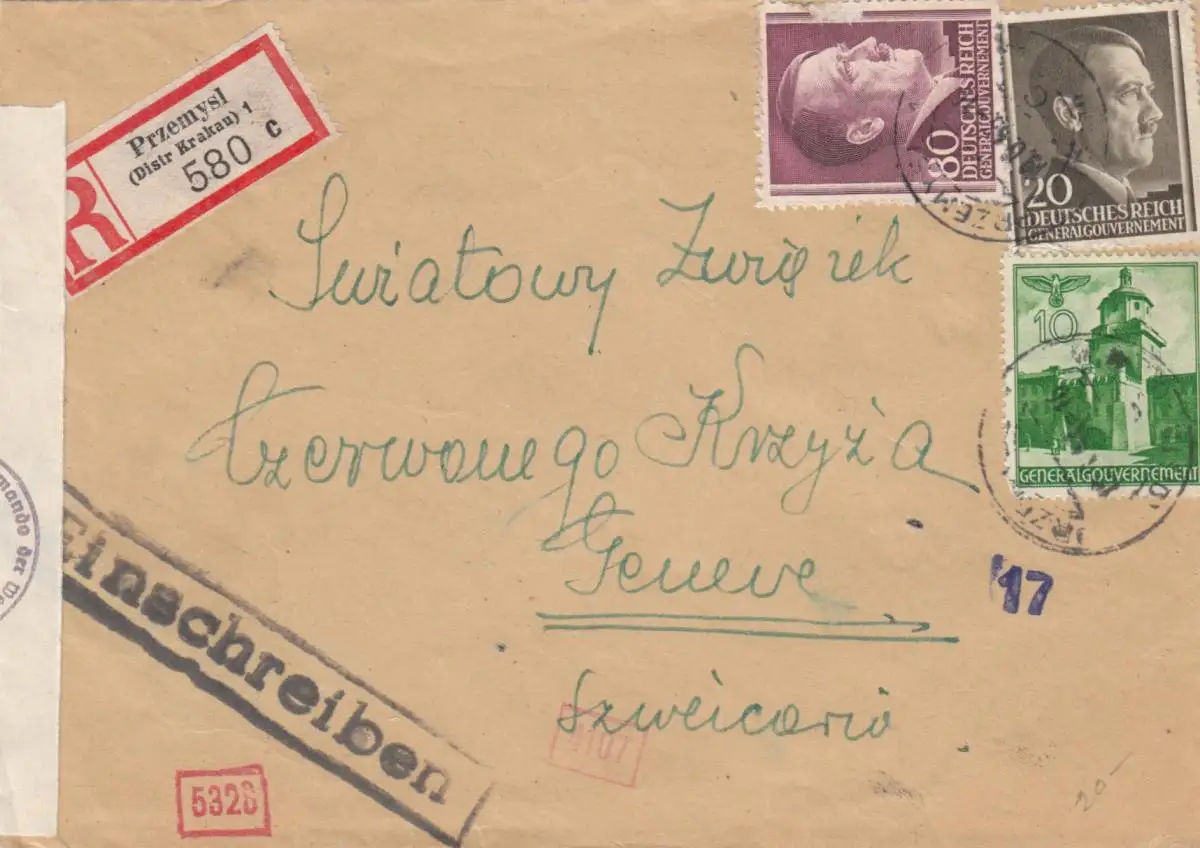 Przemysl
(Distr Krakau) 1
580 c
R
80
DEUTSCHES REICH
GENERALGOUVERNEMENT
20
DEUTSCHES REICH
GENERALGOUVERNEMENT
10
GENERALGOUVERNEMENT
Światowy Związek
Czerwonego Krzyża
Geneve
Szweicaria
Einschreiben
17
mando der We
5328
20-